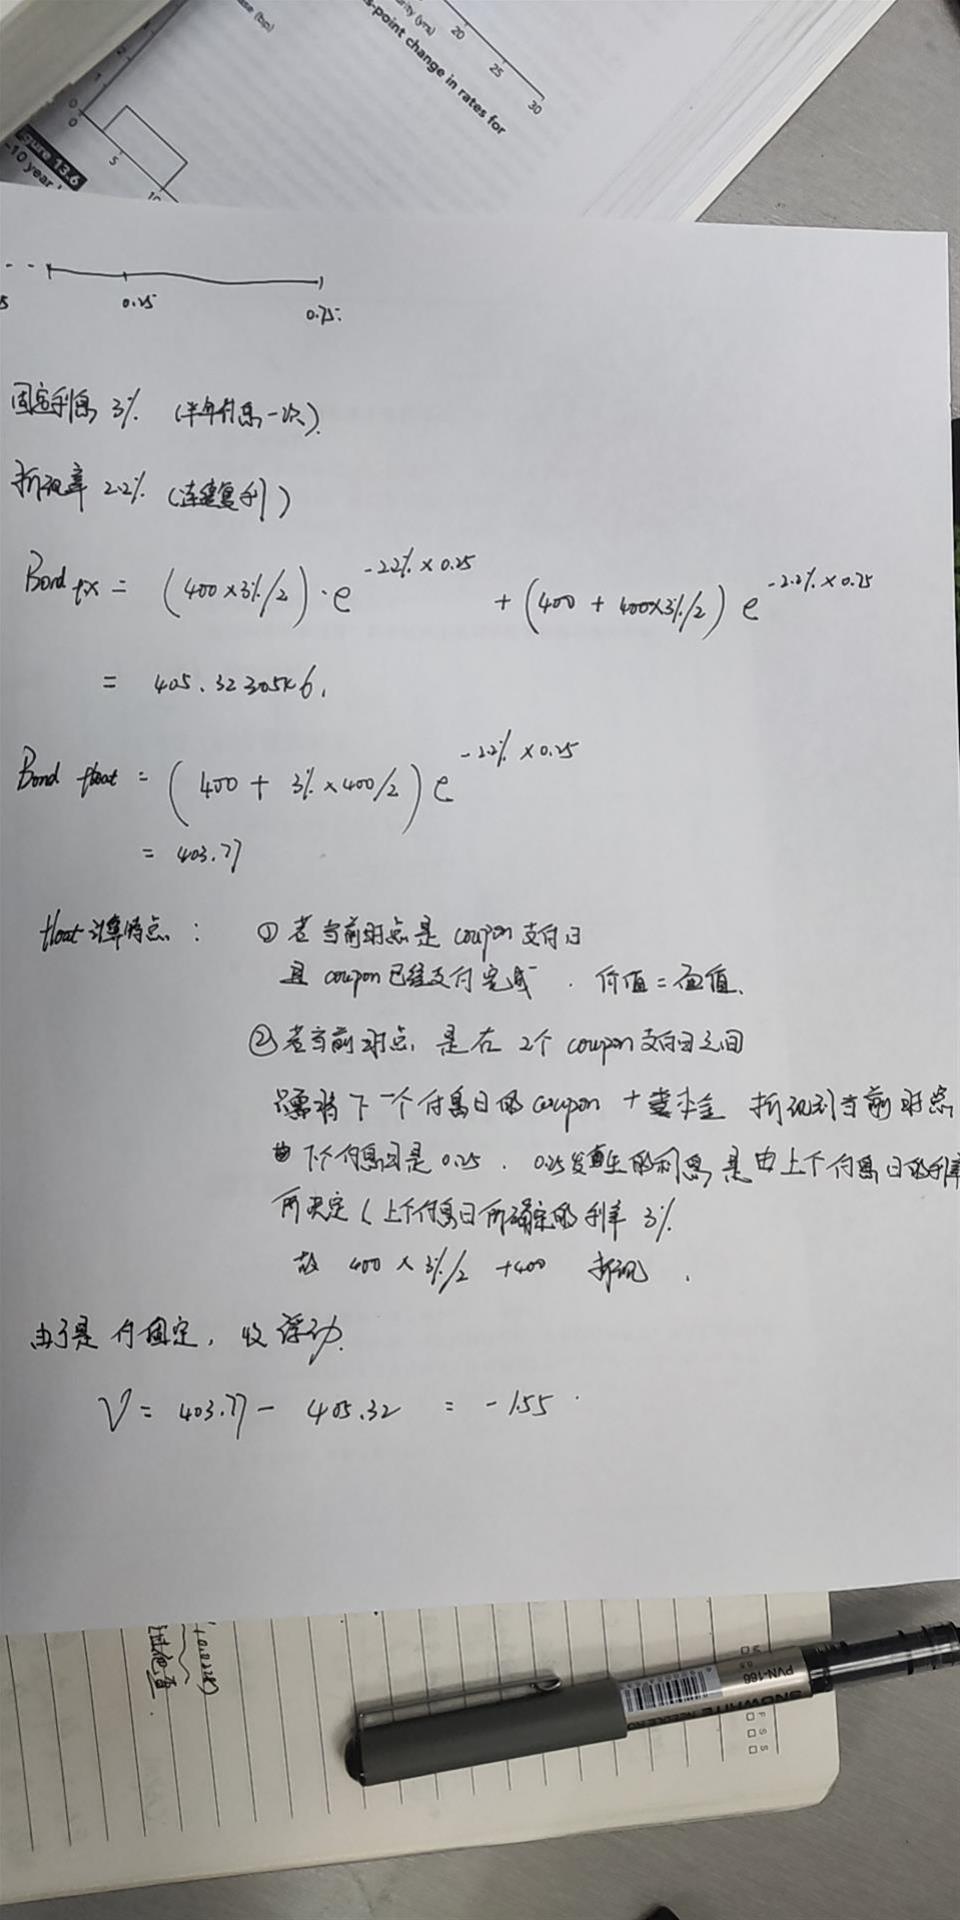 ase (bp)
rity (yrs)
20
25
30
s-point change in rates for
0
0
5
10
gure 13.6
-10 year
5
0.25
0.75.
固定利息 3% (半年付息一次).
折现率 2.2% (连续复利)
Bond fix = (400×3%/2)·e^{-2.2%×0.25} + (400 + 400×3%/2) e^{-2.2%×0.75}
= 405.32305
Bond float = (400 + 3%×400/2) e^{-2.2%×0.25}
= 403.77
float 计算特点: ① 若当前时点是 coupon 支付日
且 coupon 已经支付完成. 价值=面值.
② 若当前时点, 是在 2个 coupon 支付日之间
只需将下一个付息日的 coupon + 本金 折现到当前时点
下个付息日是 0.25. 0.25 的利息是由上个付息日的利率
所决定 (上个付息日所确定的利率 3%
故 400×3%/2 +400 折现.
由于是付固定, 收浮动.
V = 403.77 - 405.32 = -1.55
PVN-166
SNOWHITE NEEDLE
F S S